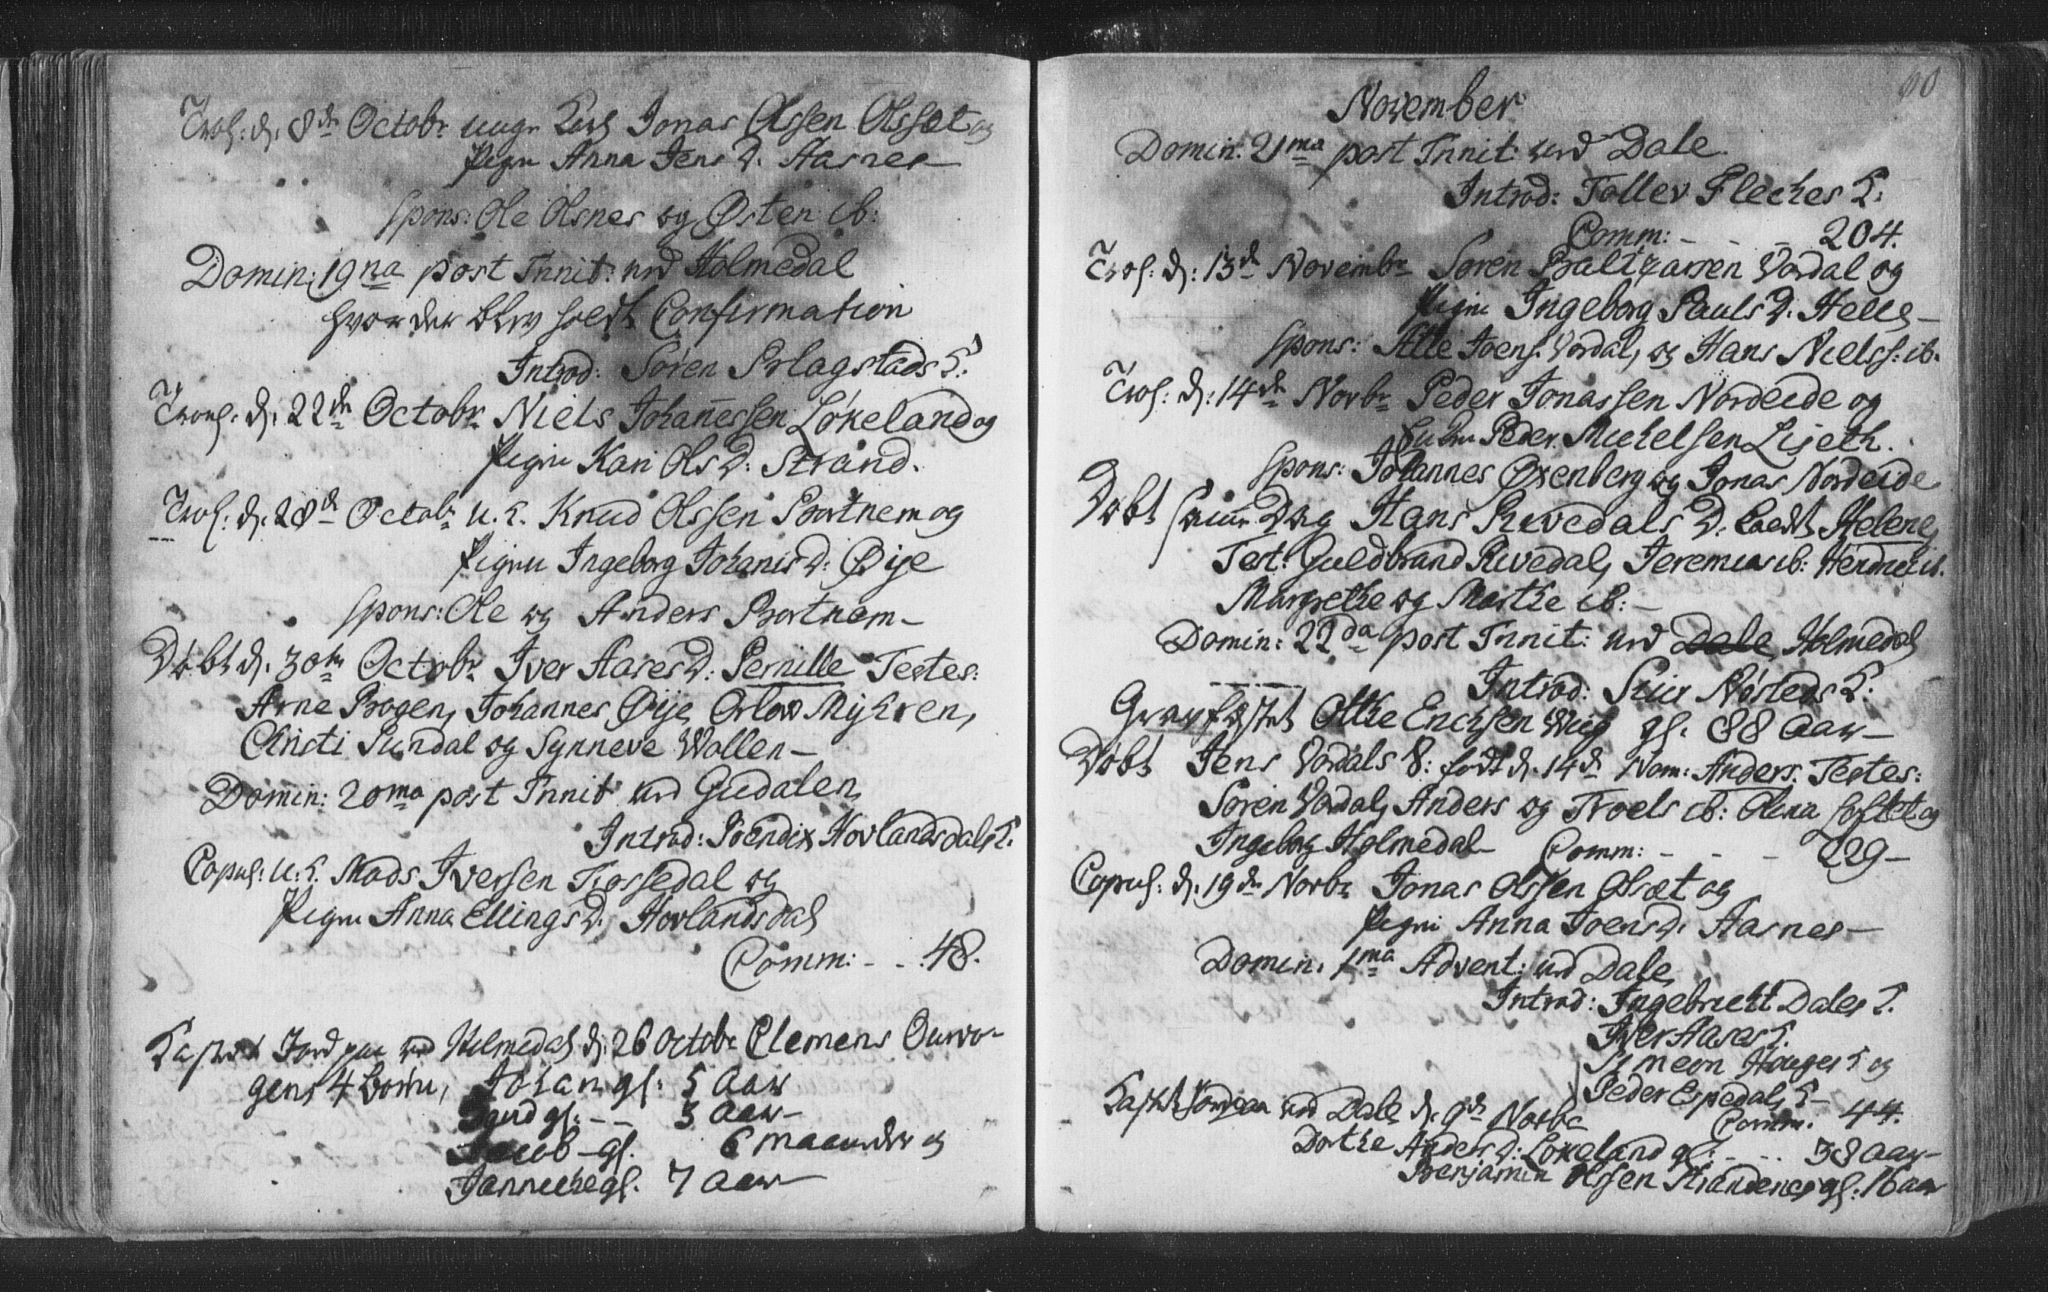 Trol: d: 8de Octobr unge Karl Jonas Olssen Olsset og
Pigen Anna Jens D: Aasnes
Spons: Ole Olsnes og Østen ib:
Domin: 19na post Trinit: ved Holmedal
hvor der blev holdt Confirmation
Introd: Søren Brlagstads K:
Trol: d: 22de Octobr Niels Johannessen Løkeland og
Pigen Kari Ols D: Strand.
Trol: d: 28de Octobr u. K. Knud Olssen Bortnem og
Pigen Ingeborg Johanis D: Øije
Spons: Ole og Anders Bortnem
Døbt d: 30te Octobr Iver Aares D: Pernille Testes:
Arne Bogen, Johannes Øije, Orlow Myhren,
Christi Sundal og Synneve Wollen
Domin: 20ma post Trinit ved Gudalen,
Introd: Bendix Hovlandsdals K:
Copul: u: K. Mads Iversen Tossedal og
Pigen Anna Ellings D: Hovlandsdal
Comm: - - 48.
Kastet Jord paa ved Holmedal d: 26 Octobr Clemens
gens 4 Børn, Johan gl: 5 Aar
gl: - - 3 Aar
Jacob - gl. 6 maaneder og
Janneche gl. 7 Aar
90
November
Domin: 21ma post Trinit: ved Dale.
Introd: Tollev Fleches K:
Comm: - - - 204.
Trol: d: 13de Novembr Søren Baltzarsen Vardal og
Pigen Ingeborg Pauls D. Helle
Spons: Atle Joens: Vardal, og Hans Nielss: ib.
Trol: d: 14de Novbr Peder Jonassen Nordeide og
Peder Michelsen Liseth.
Spons: Johannes Oxenberg og Jonas Nordeide
Døbt samme Dag Hans Rivedals D: kaldt Helene,
Test: Guldbrand Rivedal, Jeremias ib: ib.
Margrethe og Marthe ib:
Domin: 22da post Trinit: ved Dale Holmedal
Introd: Siur Nøsteds K:
Gravfæstet Otthe Erichsen Wiig gl. 88 Aar
Døbt Jens Vardals S: født d. 14de Nom: Anders. Testes:
Søren Vardal, Anders og Troels ib: Olena Loftet og
Ingeborg Holmedal Comm: - - - 229
Copul: d: 19de Novbr Jonas Olssen Olsæt og
Pigen Anna Joens D: Aasnes
Domin: 1ma Advent: ved Dale,
Introd: Ingebricht Dales K.
Iver Aares K.
Simeon Hauges K og
Peder Espedals K
Kastet Jord paa ved Dale d: 9de Novbr Comm. 44.
Dorthe Anders D: Løkeland gl: - - 38 Aar
Benjamin Olssen Strandenes gl: 16 Aar